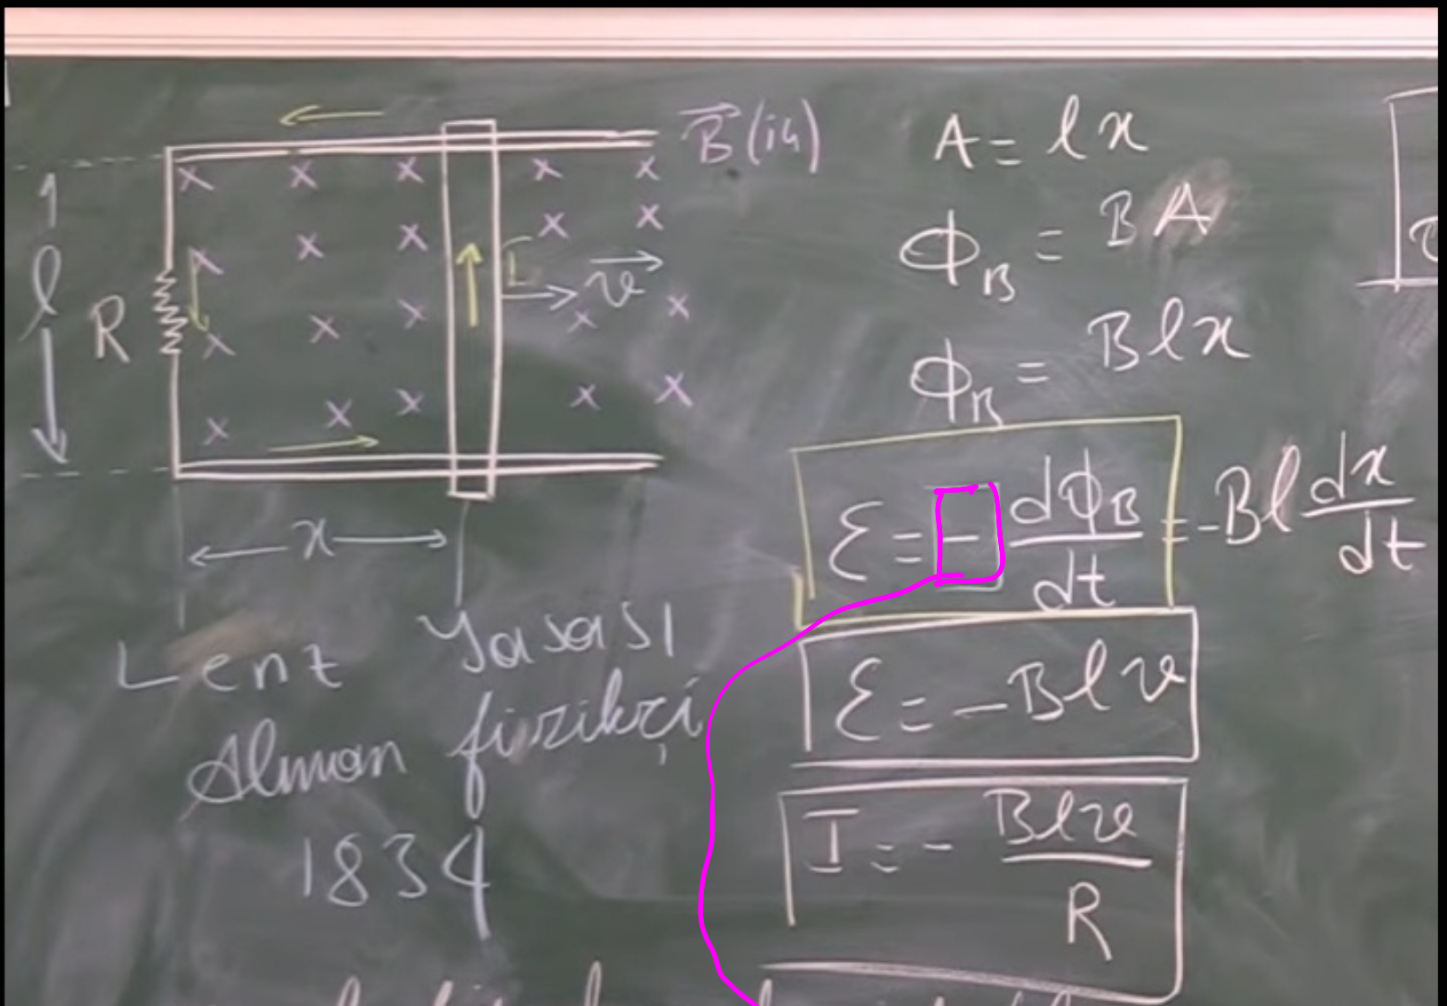 B⃗ (in)
l
R
I
v⃗
x
A = lx
Φ_B = BA
Φ_B = Blx
ℰ = - dΦ_B/dt = -Bl dx/dt
ℰ = -Blv
I = - Blv/R
Lenz Yasası
Alman fizikçi
1834